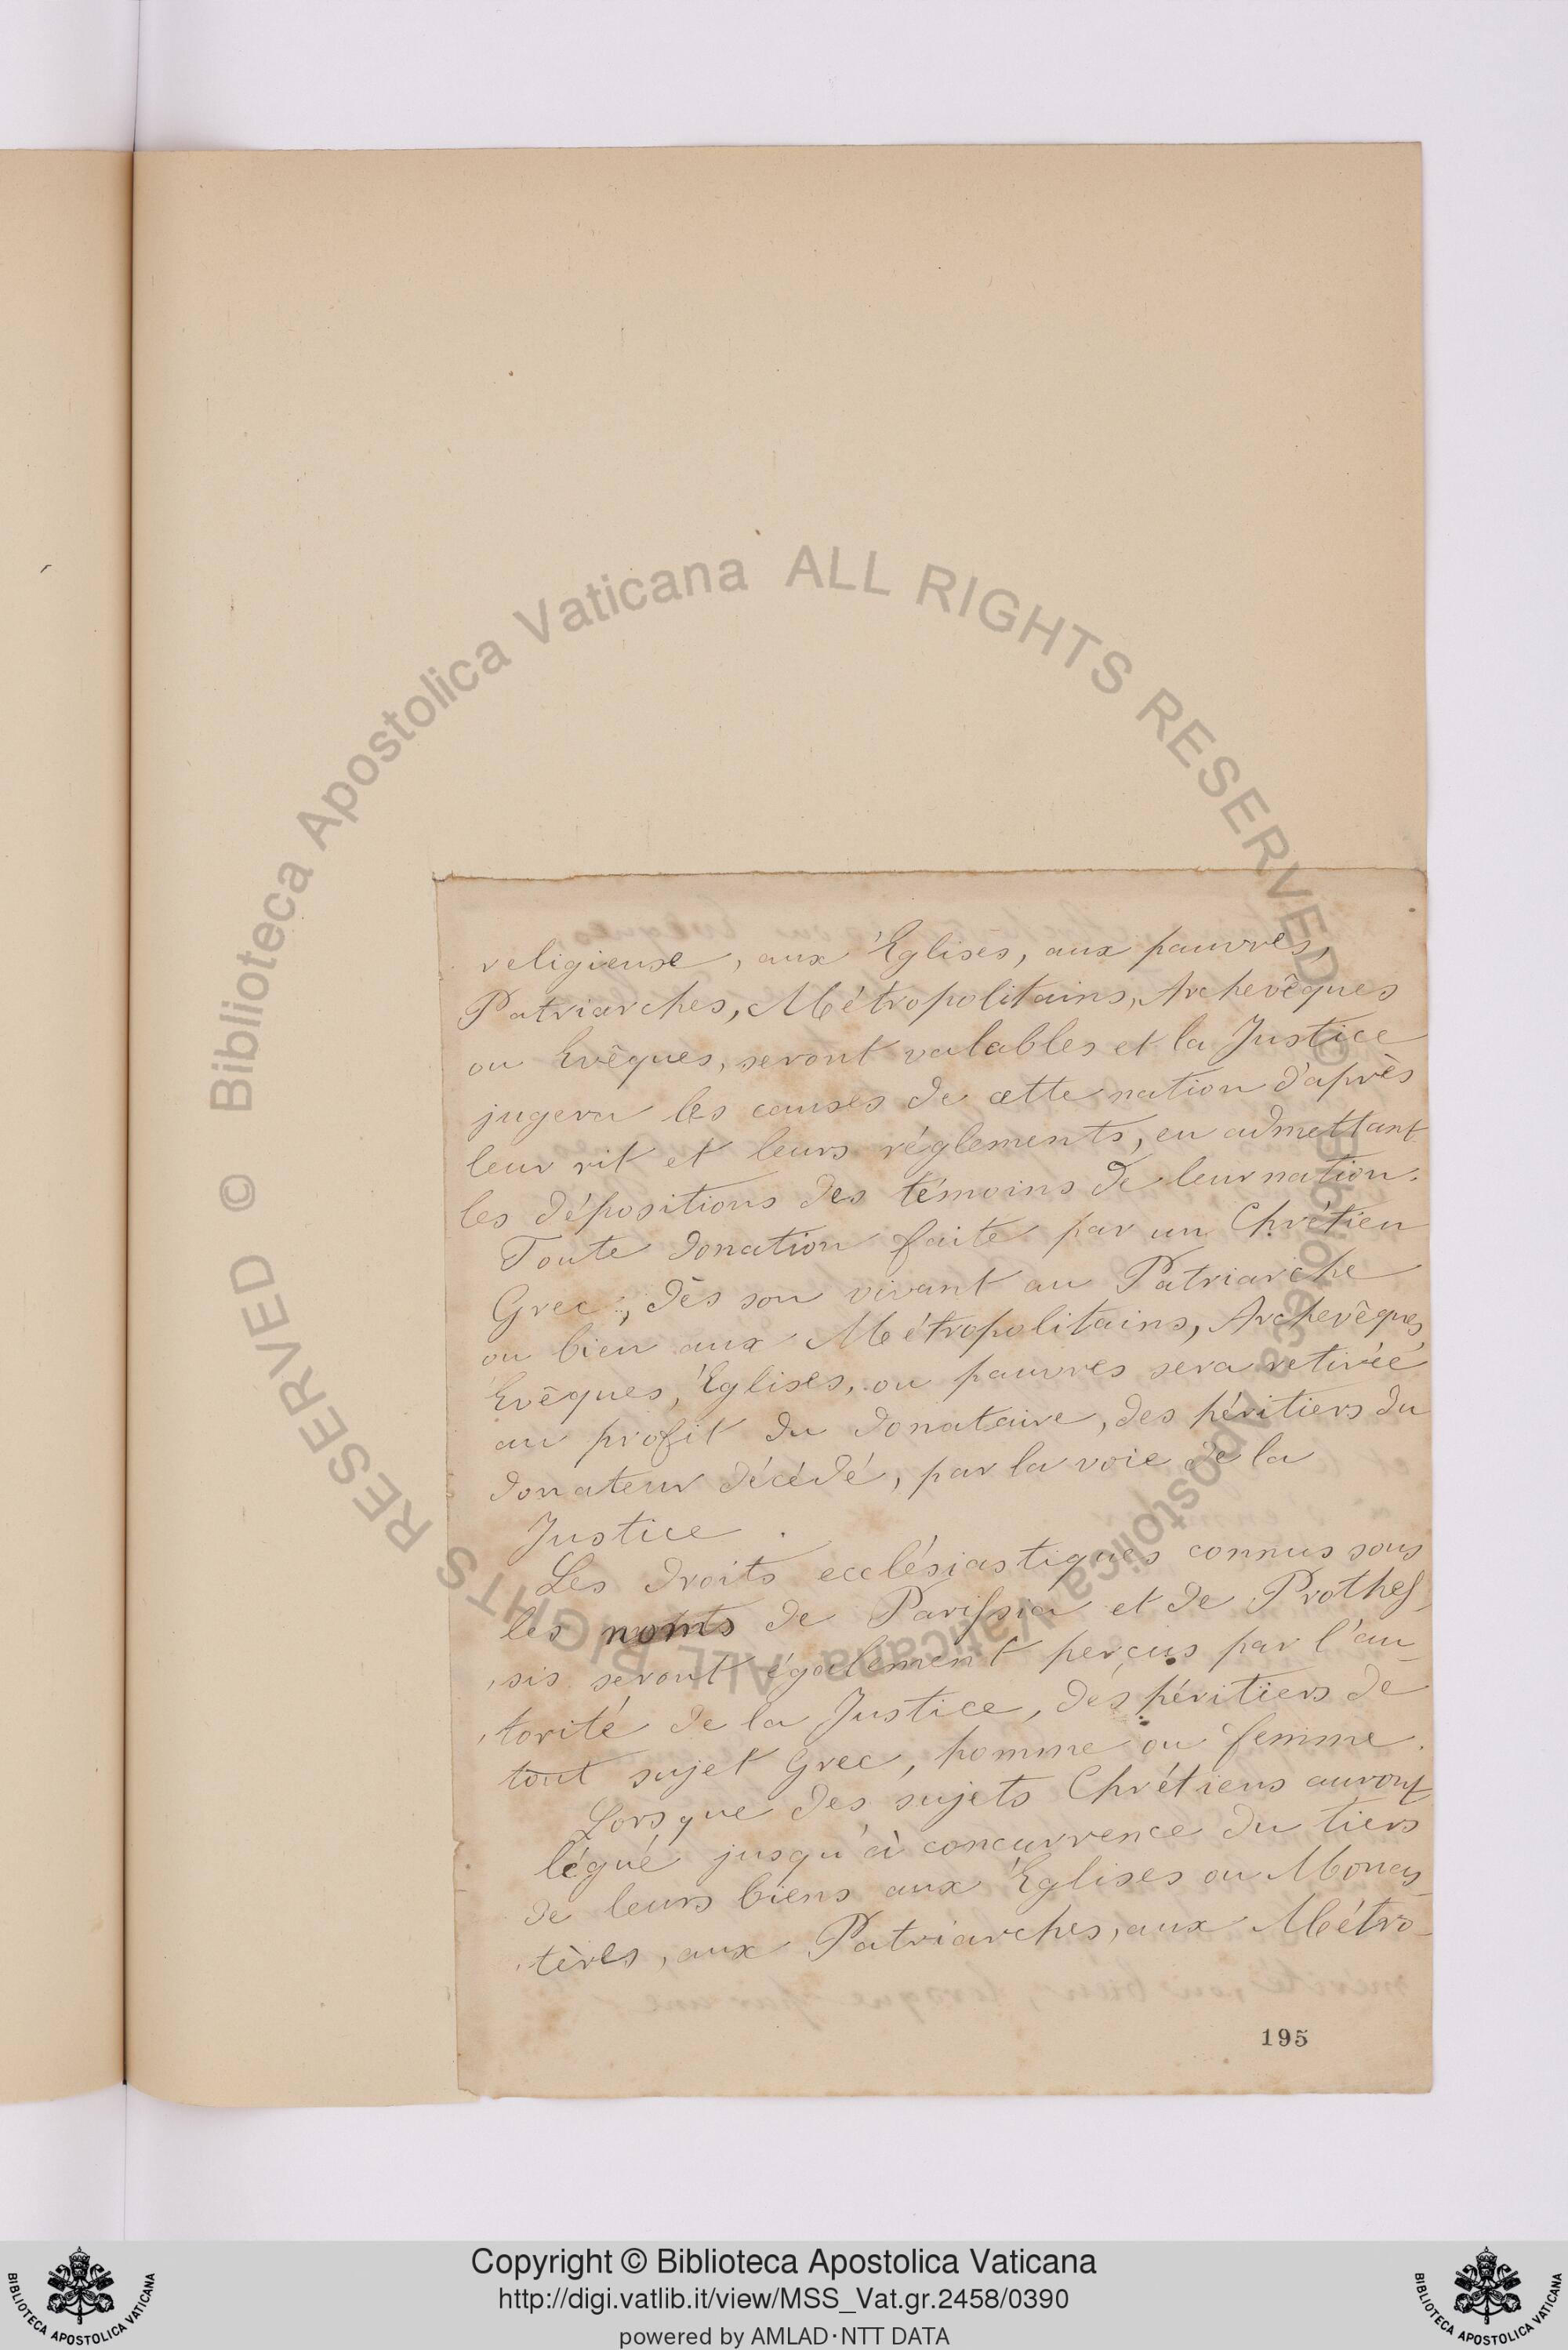 religieuse, aux Eglises, aux pauvres,
Patriarches, Métropolitains, Archevêques
ou Evêques, seront valables et la Justice
jugera les causes de cette nation d'après
leur rit et leurs réglements, en admettant
les dépositions des témoins de leur nation.
Toute donation faite par un Chrétien
Grec, dès son vivant au Patriarche
ou bien aux Métropolitains, Archevêques,
Evêques, Eglises, ou pauvres sera retirée
au profit du donataire, des héritiers du
donateur décédé, par la voie de la
Justice.
Les droits ecclésiastiques connus sous
les noms de Parissia et de Prothes-
sis seront également perçus par l'au-
torité de la Justice, des héritiers de
tout sujet Grec, homme ou femme.
Lorsque des sujets Chrétiens auront
légué jusqu'à concurrence du tiers
de leurs biens aux Eglises ou Monas-
tères, aux Patriarches, aux Métro-
195
© Biblioteca Apostolica Vaticana ALL RIGHTS RESERVED
© Biblioteca Apostolica Vaticana ALL RIGHTS RESERVED
Copyright © Biblioteca Apostolica Vaticana
http://digi.vatlib.it/view/MSS_Vat.gr.2458/0390
powered by AMLAD·NTT DATA
BIBLIOTECA APOSTOLICA VATICANA
BIBLIOTECA APOSTOLICA VATICANA